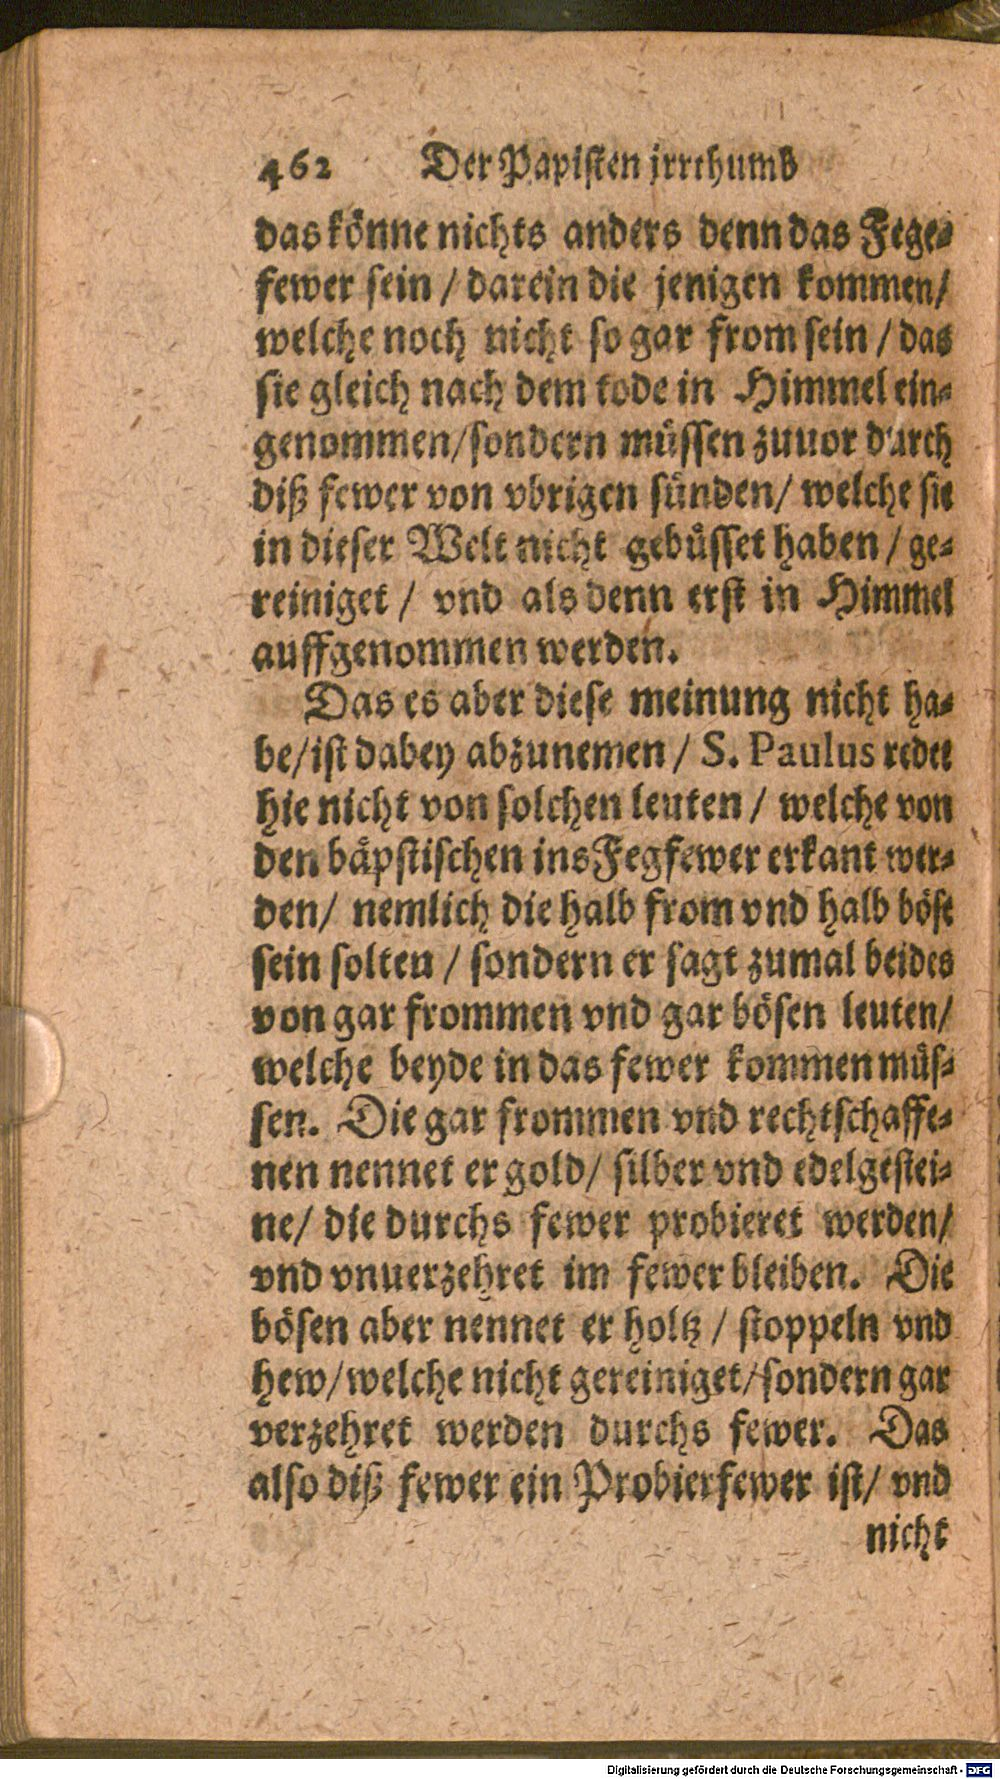 462 Der Papisten jrrthumb
das könne nichts anders denn das Fege⸗
fewer sein / darein die jenigen kommen/
welche noch nicht so gar from sein / das
sie gleich nach dem tode in Himmel ein⸗
genommen/sondern müssen zuuor durch
diß fewer von vbrigen sünden/ welche sie
in dieser Welt nicht gebüsset haben / ge⸗
reiniget / vnd als denn erst in Himmel
auffgenommen werden.
Das es aber diese meinung nicht ha⸗
be/ist dabey abzunemen / S. Paulus redet
hie nicht von solchen leuten / welche von
den bäpstischen ins Fegfewer erkant wer⸗
den/ nemlich die halb from vnd halb böse
sein solten / sondern er sagt zumal beides
von gar frommen vnd gar bösen leuten/
welche beyde in das fewer kommen müs⸗
sen. Die gar frommen vnd rechtschaffe⸗
nen nennet er gold/ silber vnd edelgestei⸗
ne/ die durchs fewer probieret werden/
vnd vnuerzehret im fewer bleiben. Die
bösen aber nennet er holtz / stoppeln vnd
hew/welche nicht gereiniget/sondern gar
verzehret werden durchs fewer. Das
also diß fewer ein Probierfewer ist/ vnd
nicht
Digitalisierung gefördert durch die Deutsche Forschungsgemeinschaft - DFG